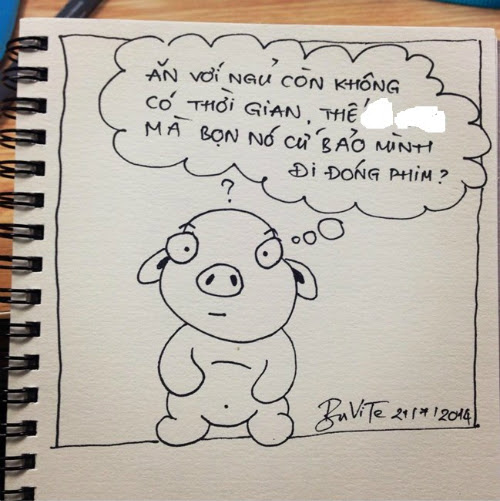 ĂN VỚI NGỦ CÒN KHÔNG
CÓ THỜI GIAN, THẾ
MÀ BỌN NÓ CỨ BẢO MÌNH
ĐI ĐÓNG PHIM?
?
BuViTe 21/7/2014